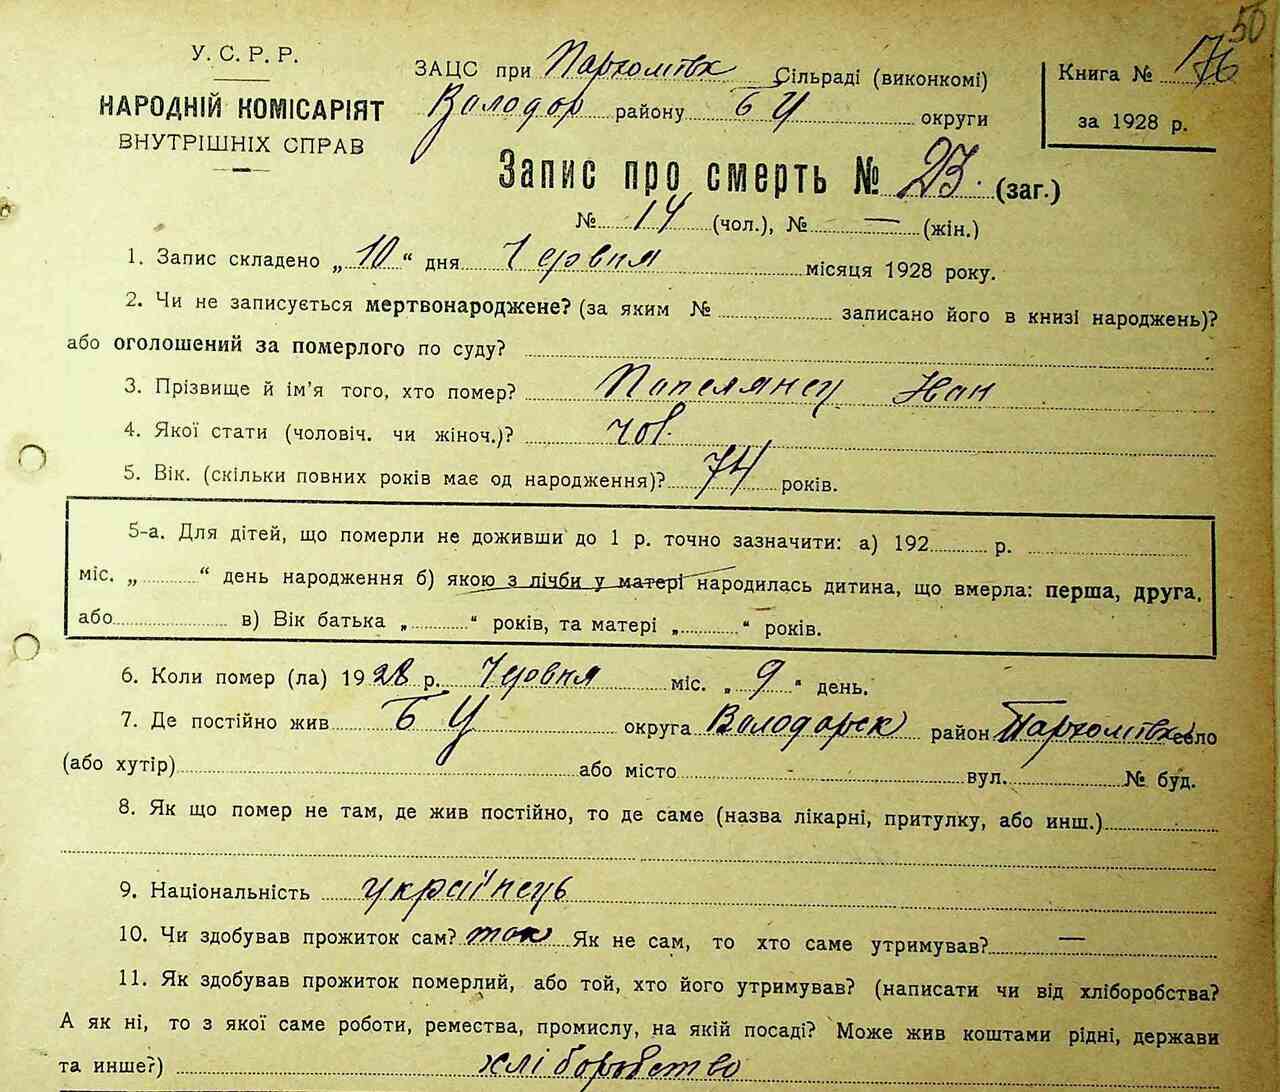 50
У. С. Р. Р.
НАРОДНІЙ КОМІСАРІЯТ
ВНУТРІШНІХ СПРАВ
ЗАЦС при Пархомівк Сільраді (виконкомі)
Володор району БЦ округи
Книга № 176
за 1928 р.
Запис про смерть № 23. (заг.)
№ 14 (чол.), № — (жін.)
1. Запис складено „10“ дня Червня місяця 1928 року.
2. Чи не записується мертвонароджене? (за яким № записано його в книзі народжень)?
або оголошений за померлого по суду?
3. Прізвище й ім'я того, хто помер? Иван
4. Якої стати (чоловіч. чи жіноч.)? чов.
5. Вік. (скільки повних років має од народження)? 74 років.
5-а. Для дітей, що померли не доживши до 1 р. точно зазначити: а) 192 р.
міс. „ “ день народження б) якою з лічби у матері народилась дитина, що вмерла: перша, друга,
або в) Вік батька „ “ років, та матері „ “ років.
6. Коли помер (ла) 1928 р. Червня міс. „9“ день.
7. Де постійно жив БЦ округа Володарск район Пархомівка село
(або хутір) або місто вул. № буд.
8. Як що помер не там, де жив постійно, то де саме (назва лікарні, притулку, або инш.)
9. Національність українець
10. Чи здобував прожиток сам? так Як не сам, то хто саме утримував? —
11. Як здобував прожиток померлий, або той, хто його утримував? (написати чи від хліборобства?
А як ні, то з якої саме роботи, ремества, промислу, на якій посаді? Може жив коштами рідні, держави
та инше?) хліборобство